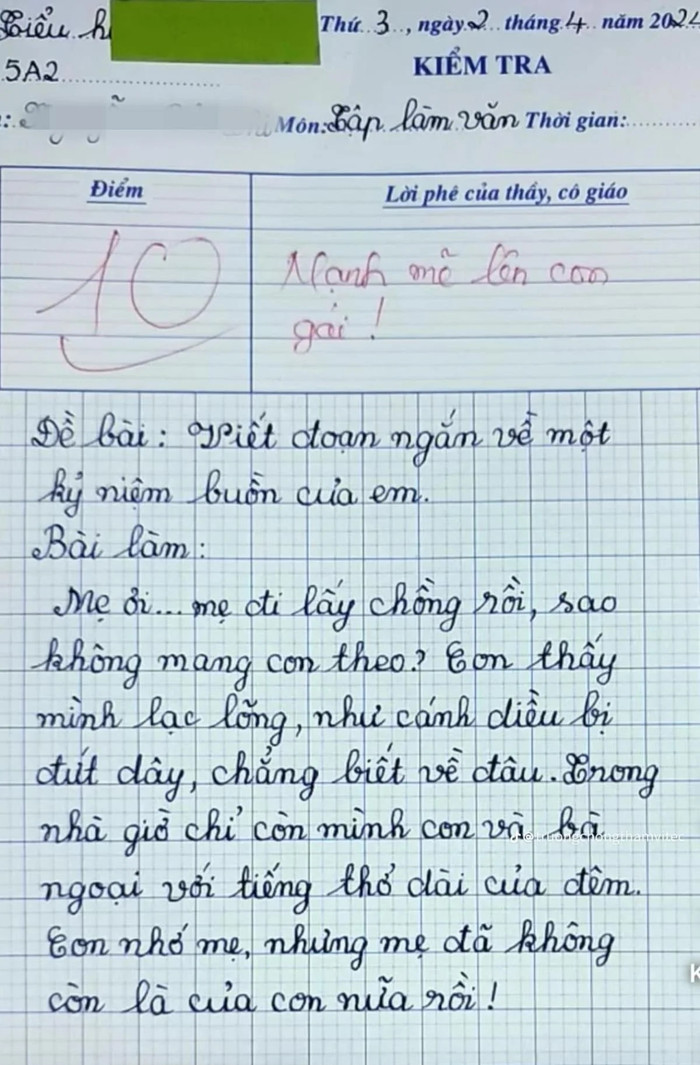 Tiểu h
Thứ 3, ngày 2 tháng 4 năm 2024
5A2
KIỂM TRA
Môn: Tập làm văn Thời gian:
Điểm
Lời phê của thầy, cô giáo
10
Mạnh mẽ lên con
gái!
Đề bài: Viết đoạn ngắn về một
kỷ niệm buồn của em.
Bài làm:
Mẹ ơi... mẹ đi lấy chồng rồi, sao
không mang con theo? Con thấy
mình lạc lõng, như cánh diều bị
đứt dây, chẳng biết về đâu. Trong
nhà giờ chỉ còn mình con và bà
ngoại với tiếng thở dài của đêm.
Con nhớ mẹ, nhưng mẹ đã không
còn là của con nữa rồi!